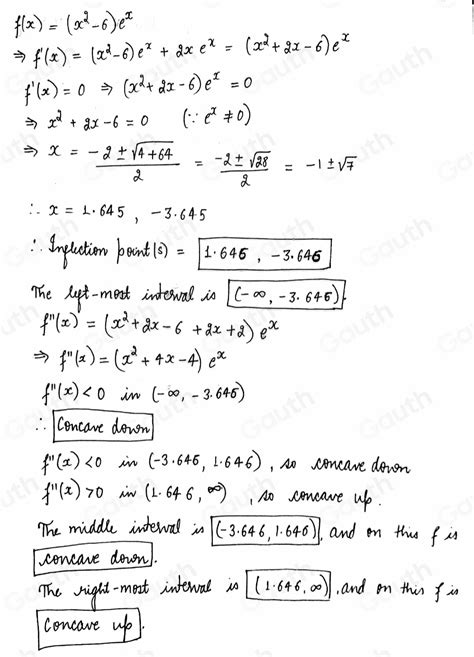 f(x) = (x² - 6) eˣ
⇒ f'(x) = (x² - 6) eˣ + 2x eˣ = (x² + 2x - 6) eˣ
f'(x) = 0 ⇒ (x² + 2x - 6) eˣ = 0
⇒ x² + 2x - 6 = 0 (∵ eˣ ≠ 0)
⇒ x = (-2 ± √4+64)/2 = (-2 ± √28)/2 = -1 ± √7
∴ x = 1.645 , -3.645
∴ Inflection point(s) = 1.646 , -3.646
The left-most interval is (-∞, -3.646).
f''(x) = (x² + 2x - 6 + 2x + 2) eˣ
⇒ f''(x) = (x² + 4x - 4) eˣ
f''(x) < 0 in (-∞, -3.646)
∴ Concave down
f''(x) < 0 in (-3.646, 1.646) , so concave down
f''(x) > 0 in (1.646, ∞) , so concave up.
The middle interval is (-3.646, 1.646), and on this f is
concave down.
The right-most interval is (1.646, ∞), and on this f is
Concave up.
Gauth